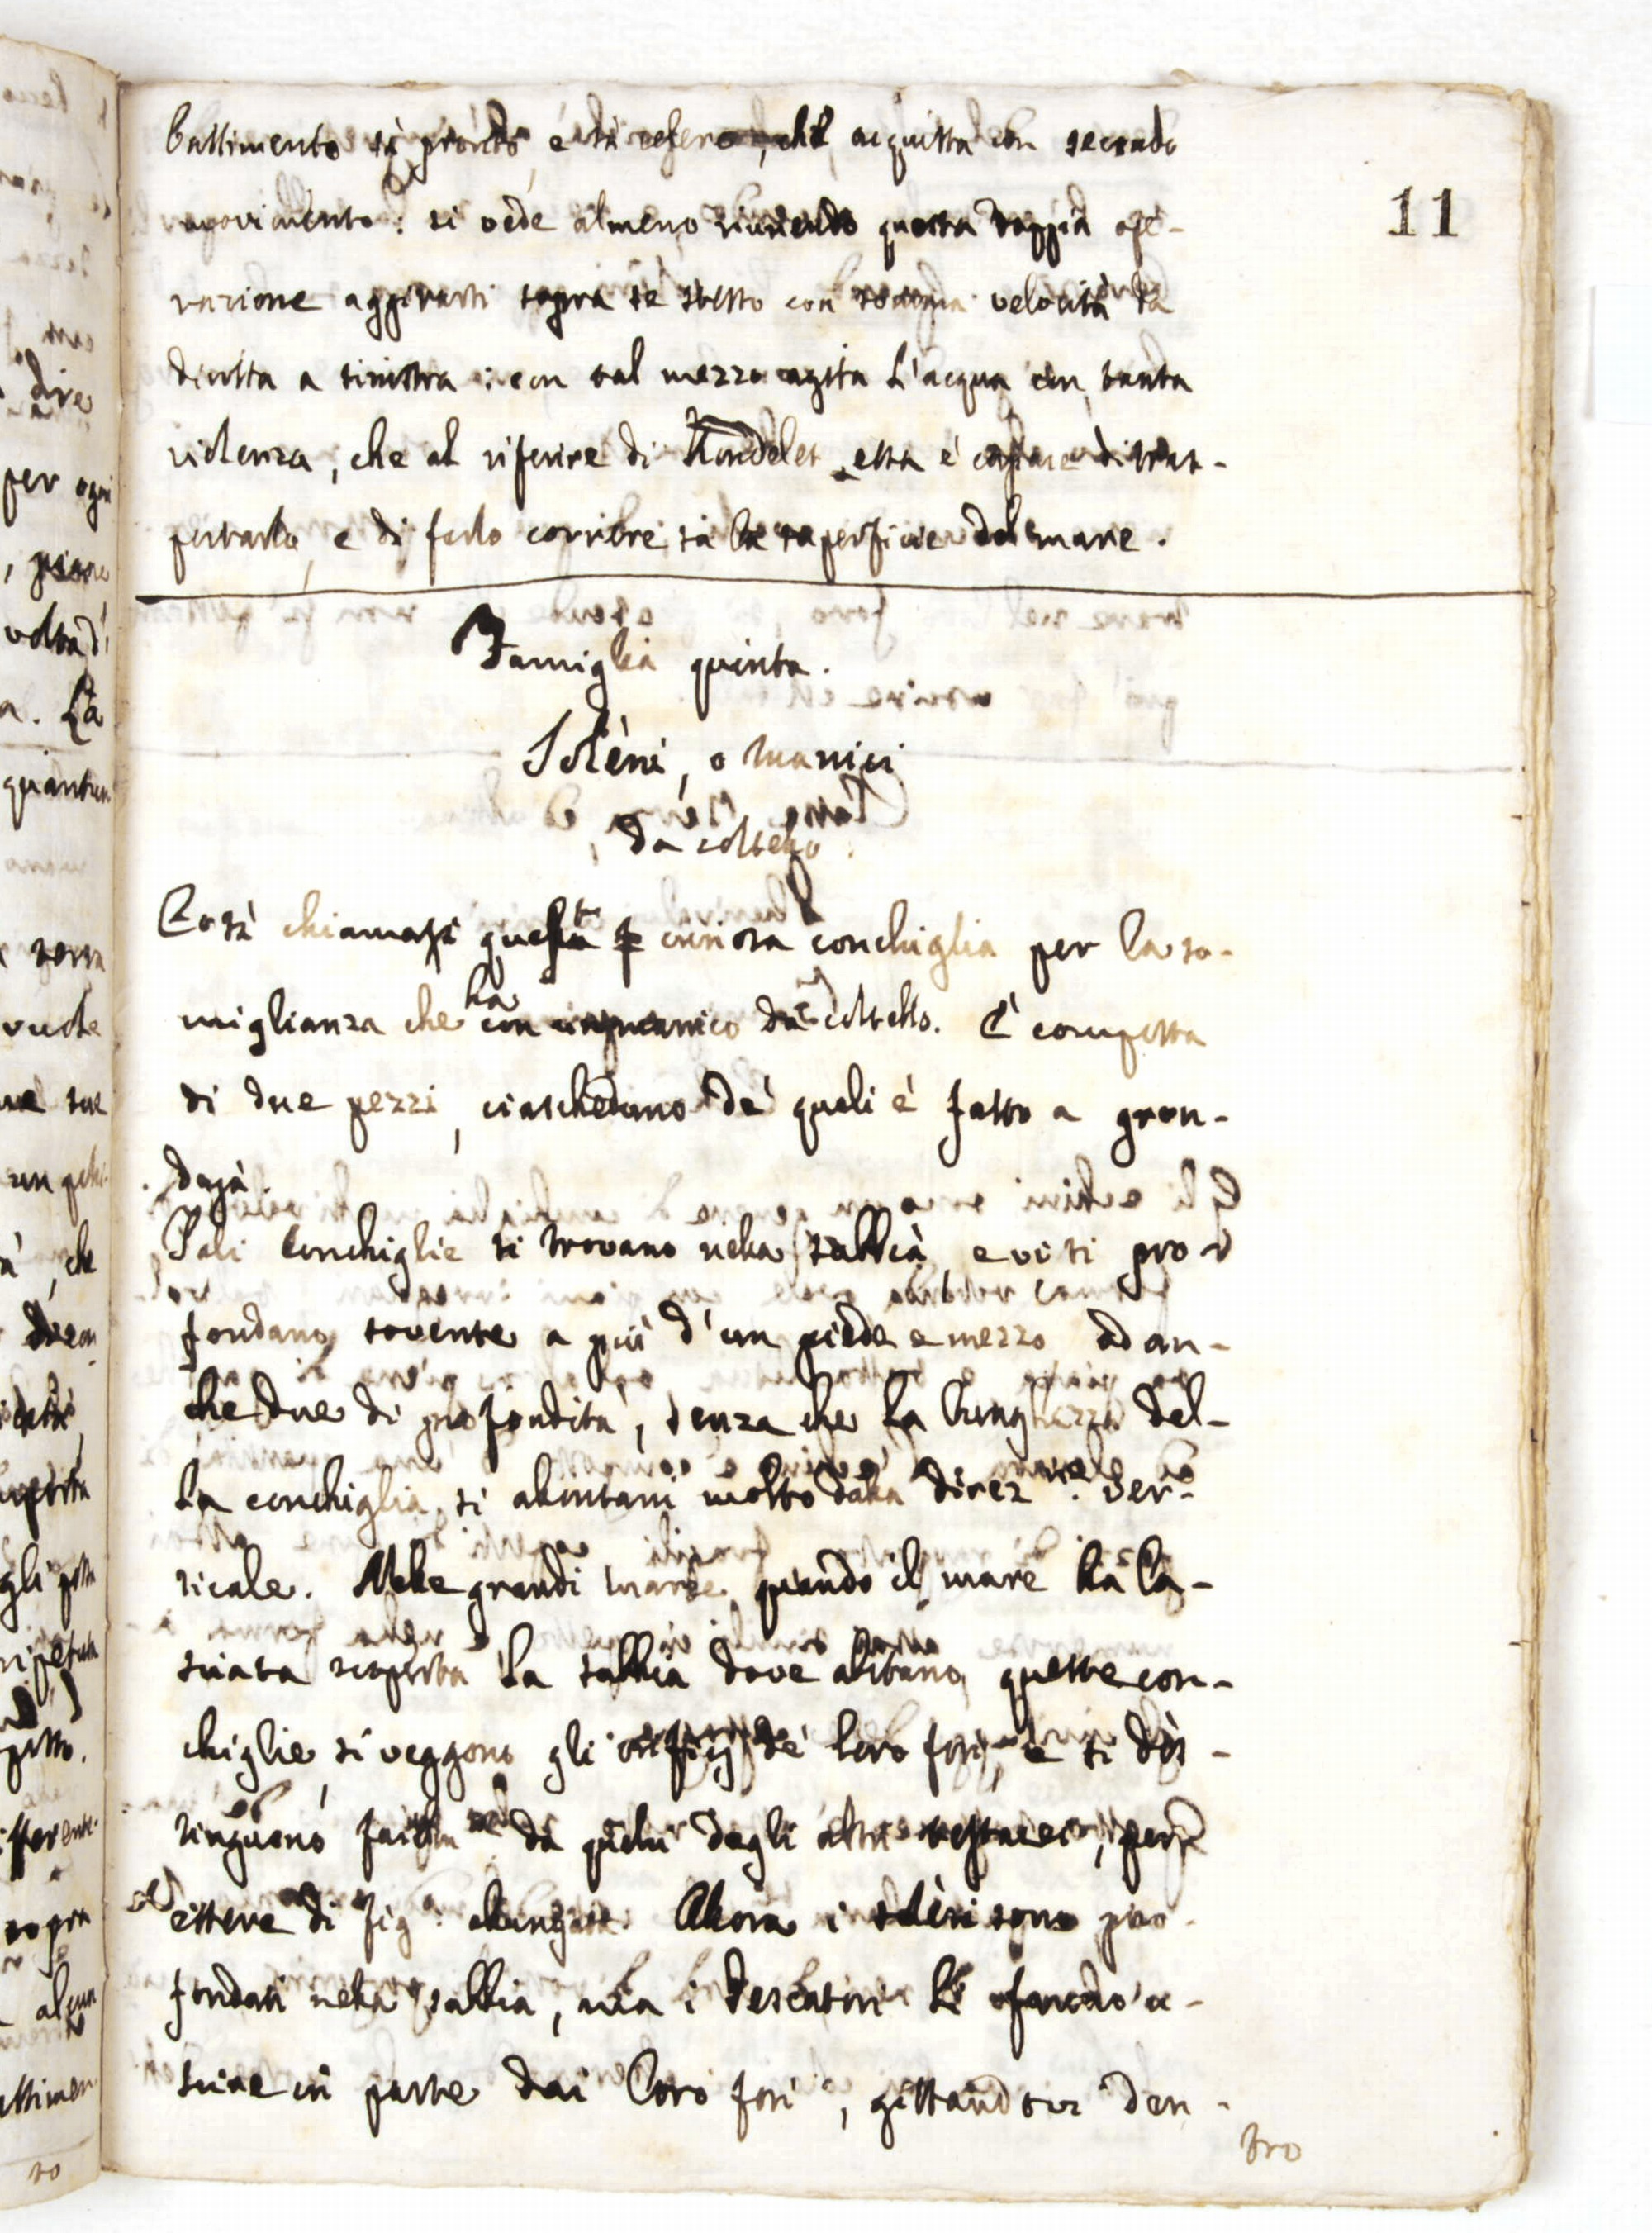 battimento sì pronto, e sì celere, ch'il acquista un secondo
11
movimento: si vede almeno riunendo questa doppia ope-
razione aggirarsi sopra sè stesso con somma velocità da
diritta a sinistra: con tal mezzo agita l'acqua con tanta
violenza, che al riferire di Rondelet essa è capace di tras-
portarlo, e di farlo correre sù la superficie del mare.
Famiglia quinta.
Solèni, o manici
da coltello.
Così chiamasi questa curiosa conchiglia per la so-
miglianza che ha con un manico da coltello. E' composta
di due pezzi, ciascheduno de' quali è fatto a gron-
daja.
Tali conchiglie si trovano nella sabbia, e vi si pro-
fondano sovente a più d'un piede e mezzo ed an-
che due di profondità, senza che la lunghezza del-
la conchiglia si allontani molto dalla direz.ne ver-
ticale. Nelle grandi maree quando il mare ha la-
sciata scoperta la sabbia dove abitano queste con-
chiglie, si veggono gli orificj de' loro fori, e si dis-
tinguono da quelli degli altri testacei, per
essere di fig.a allungata. Allora i solèni sono pro-
fondati nella sabbia, ma i Pescatori li fanno u-
scire in parte dai loro fori, gittandovi den-
tro